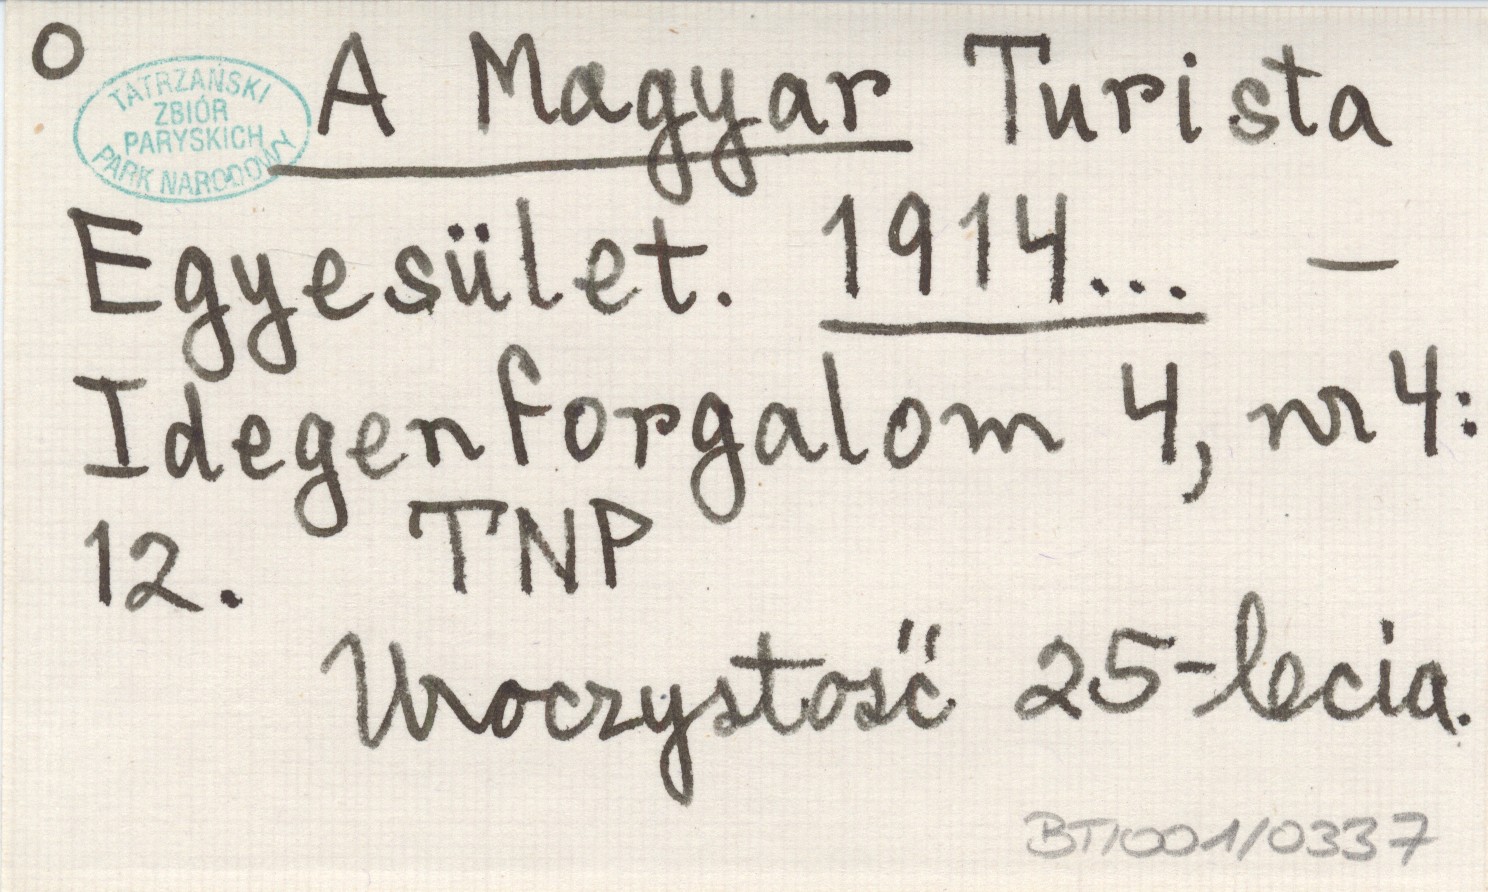 O
TATRZAŃSKI
ZBIÓR
PARYSKICH
PARK NARODOWY
A Magyar Turista
Egyesület. 1914... –
Idegenforgalom 4, nr 4:
12. TNP
Uroczystość 25-lecia.
BT/001/0337